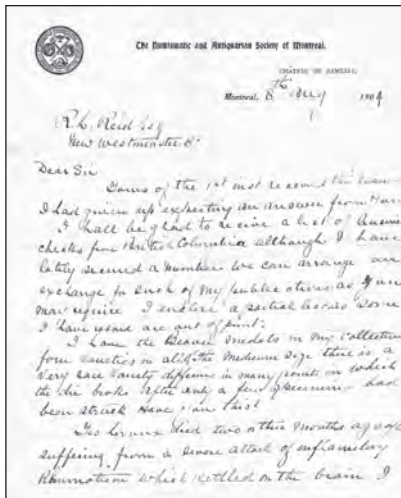 The Numismatic and Antiquarian Society of Montreal.
CHATEAU DE RAMEZAY,
Montreal, 8th Aug 1904
R. L. Reid Esq
New Westminster B.C.
Dear Sir
Yours of the 1st inst received
I had given up expecting an answer from
I shall be glad to receive a list of
checks from British Columbia although I have
lately secured a number we can arrange an
exchange for such of my publications as you
may require I enclose a partial list as some
I have issued are out of print.
I have the Beaver medals in my collection
four varieties in all of the medium size there is a
very rare variety differing in many points on which
the die broke after only a few specimens had
been struck Have you this?
died two or three months ago
suffering from a severe attack of inflamatory
Rheumatism which settled on the brain I